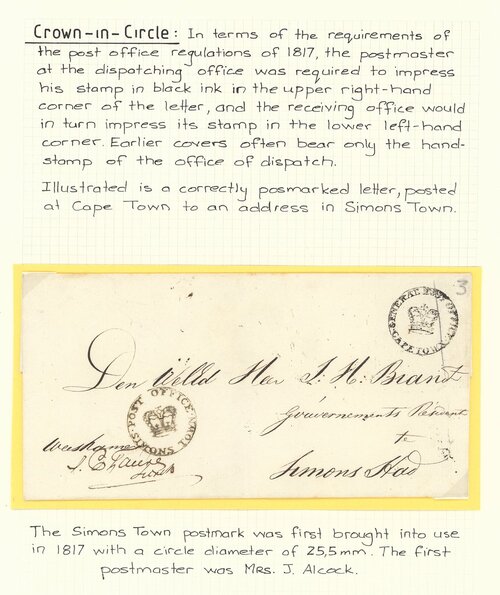 Crown-in-Circle: In terms of the requirements of
the post office regulations of 1817, the postmaster
at the dispatching office was required to impress
his stamp in black ink in the upper right-hand
corner of the letter, and the receiving office would
in turn impress its stamp in the lower left-hand
corner. Earlier covers often bear only the hand-
stamp of the office of dispatch.
Illustrated is a correctly posmarked letter, posted
at Cape Town to an address in Simons Town.
3
GENERAL POST OFFICE
CAPE TOWN
Den Welld Heer J. H. Brand
POST OFFICE
SIMONS TOWN
Gouvernements
te
Simons Stad
The Simons Town postmark was first brought into use
in 1817 with a circle diameter of 25,5mm. The first
postmaster was Mrs. J. Alcock.